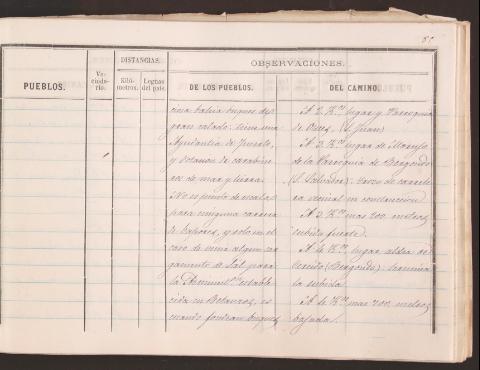 87
PUEBLOS.
Ve-
cinda-
rio.
DISTANCIAS.
Kiló-
metros.
Leguas
del país.
OBSERVACIONES.
DE LOS PUEBLOS.
DEL CAMINO.
cima bahia buques de
gran calado: tiene una
Ayudantia de Puerto,
y estacion de carabine-
ros de mar y tierra.
No es punto de escala
para ninguna carrera
de Vapores, y solo en el
caso de venir algun car-
gamento de Sal para
la estable-
cida en Betanzos, es
cuando fondean buques
A 2 K.s lugar y Parroquia
de Ouces (S. Juan)
A 3 K.s lugar de
de la Parroquia de Bergondo
(S. Salvador): trozo de carrete-
ra vecinal en construccion
A 3 K.s mas 200 metros,
subida fuerte.
A 4 K.s lugar, aldea de
(Bergondo): termina
la subida
A 4 K.s mas 200 metros
bajada.